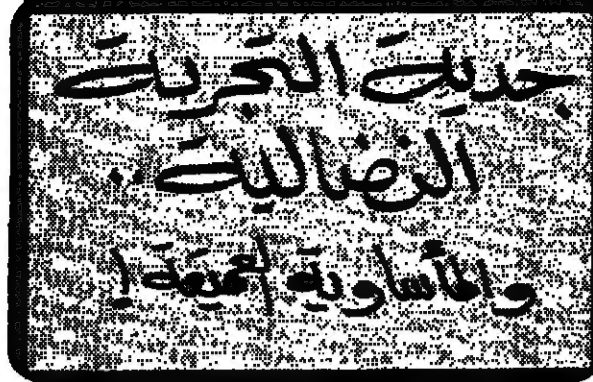 جدية التجربة
النضالية ..
والمأساوية العميقة !